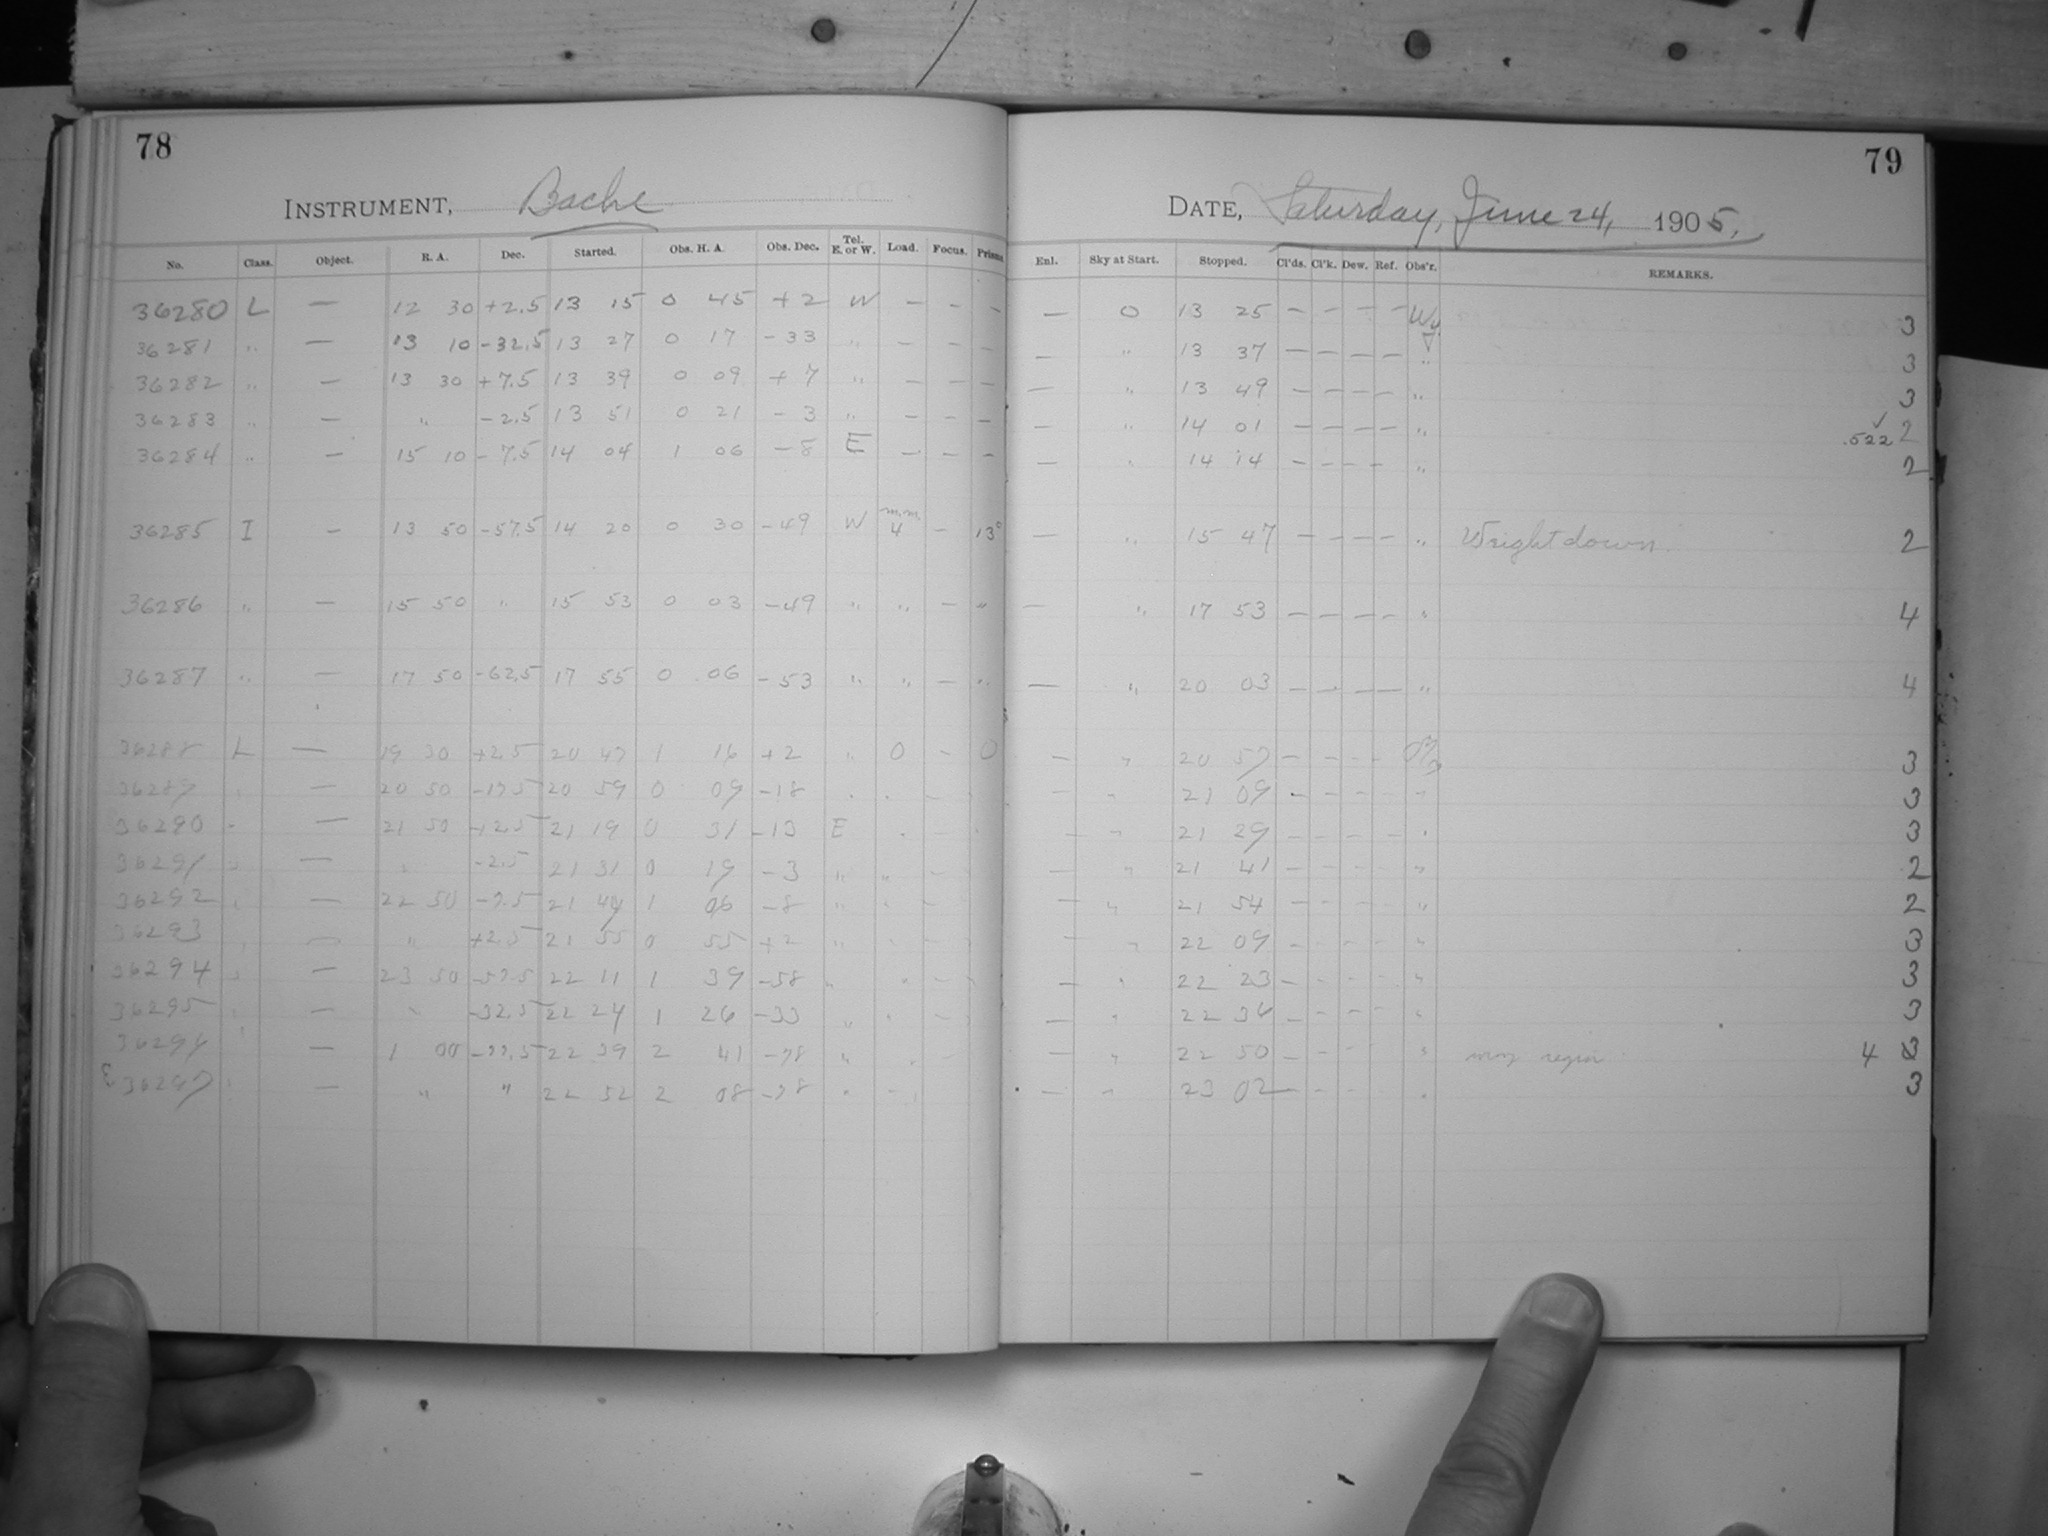 78
INSTRUMENT, Bache
No. Class. Object. R. A. Dec. Started. Obs. H. A. Obs. Dec. Tel. E. or W. Load. Focus. Prisms
36280 L — 12 30 +2.5 13 15 0 45 +2 W — — —
36281 " — 13 10 -32.5 13 27 0 17 -33 " — — —
36282 " — 13 30 +7.5 13 39 0 09 +7 " — — —
36283 " — " -2.5 13 51 0 21 -3 " — — —
36284 " — 15 10 -7.5 14 04 1 06 -8 E — — —
36285 I — 13 50 -57.5 14 20 0 30 -49 W m.m. 4 — 13°
36286 " — 15 50 " 15 53 0 03 -49 " " — "
36287 " — 17 50 -62.5 17 55 0 06 -53 " " — "
36288 L — 19 30 +2.5 20 47 1 16 +2 " 0 — 0
36289 " — 20 50 -17.5 20 59 0 09 -18
36290 " — 21 50 -12.5 21 19 0 31 -13 E
36291 " — " -2.5 21 31 0 19 -3 " "
36292 " — 22 50 -7.5 21 44 1 06 -8 "
36293 " — " +2.5 21 55 0 55 +2 "
36294 " — 23 50 -57.5 22 11 1 39 -58 "
36295 " — " -32.5 22 24 1 26 -33 "
— 1 00 -77.5 22 39 2 41 -78 "
36297 — " " 22 52 2 08 -78 "
79
DATE, Saturday, June 24, 1905,
Enl. Sky at Start. Stopped. Cl'ds. Cl'k. Dew. Ref. Obs'r. REMARKS.
— 0 13 25 — — — — Wy. 3
— " 13 37 — — — — " 3
— " 13 49 — — — — " 3
— " 14 01 — — — — " .522 ✓ 2
— " 14 14 — — — — " 2
— " 15 47 — — — — " Weight down. 2
— " 17 53 — — — — " 4
— " 20 03 — — — — " 4
— " 20 57 — — — — 3
— " 21 09 — — — — " 3
— " 21 29 — — — — " 3
— " 21 41 — — — — " 2
— " 21 54 — — — — " 2
— " 22 09 — — — — " 3
— " 22 23 — — — — " 3
— " 22 34 — — — — " 3
— " 22 50 — — — — " 4 3
— " 23 02 — — — — " 3